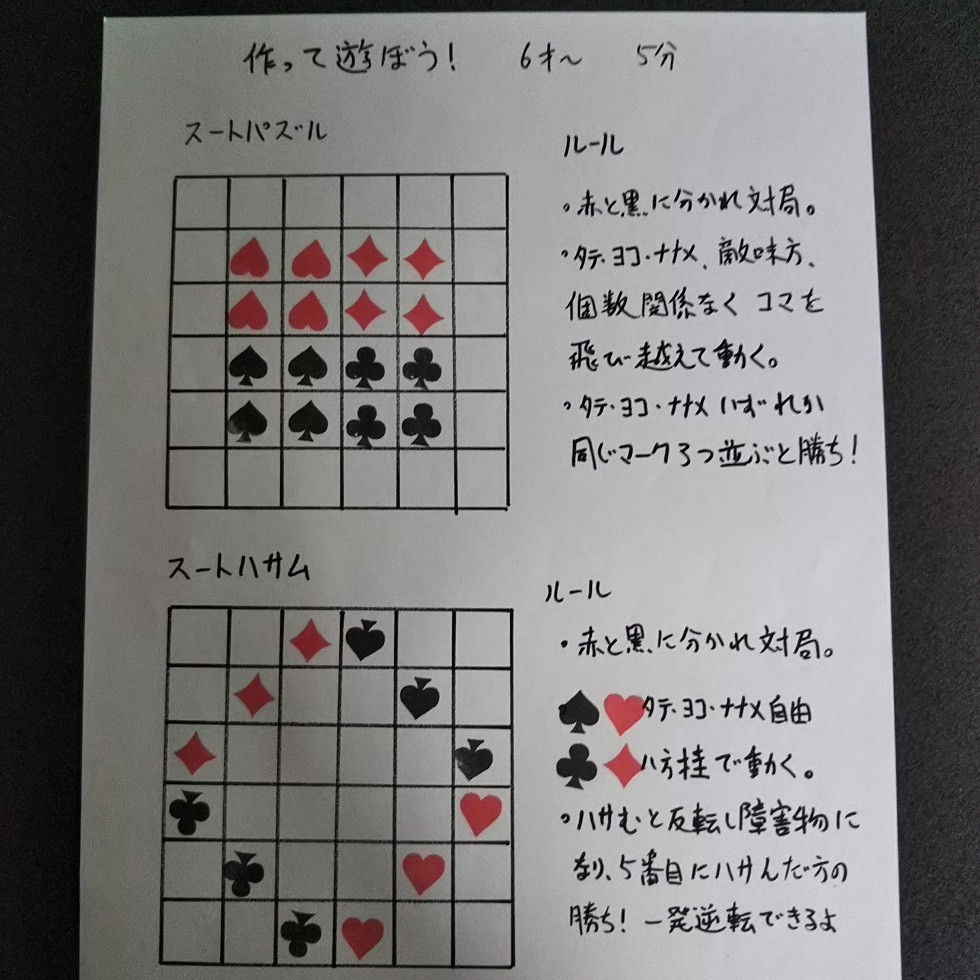 作って遊ぼう! 6才〜 5分
スートパズル
ルール
・赤と黒に分かれ対局。
・タテ・ヨコ・ナナメ、敵味方、
個数関係なく コマを
飛び越えて動く。
・タテ・ヨコ・ナナメ いずれか
同じマーク3つ並ぶと勝ち!
スートハサム
ルール
・赤と黒に分かれ対局。
♠♥タテ・ヨコ・ナナメ自由
♣♦八方桂で動く。
・ハサむと反転し障害物に
なり、5番目にハサんだ方の
勝ち! 一発逆転できるよ